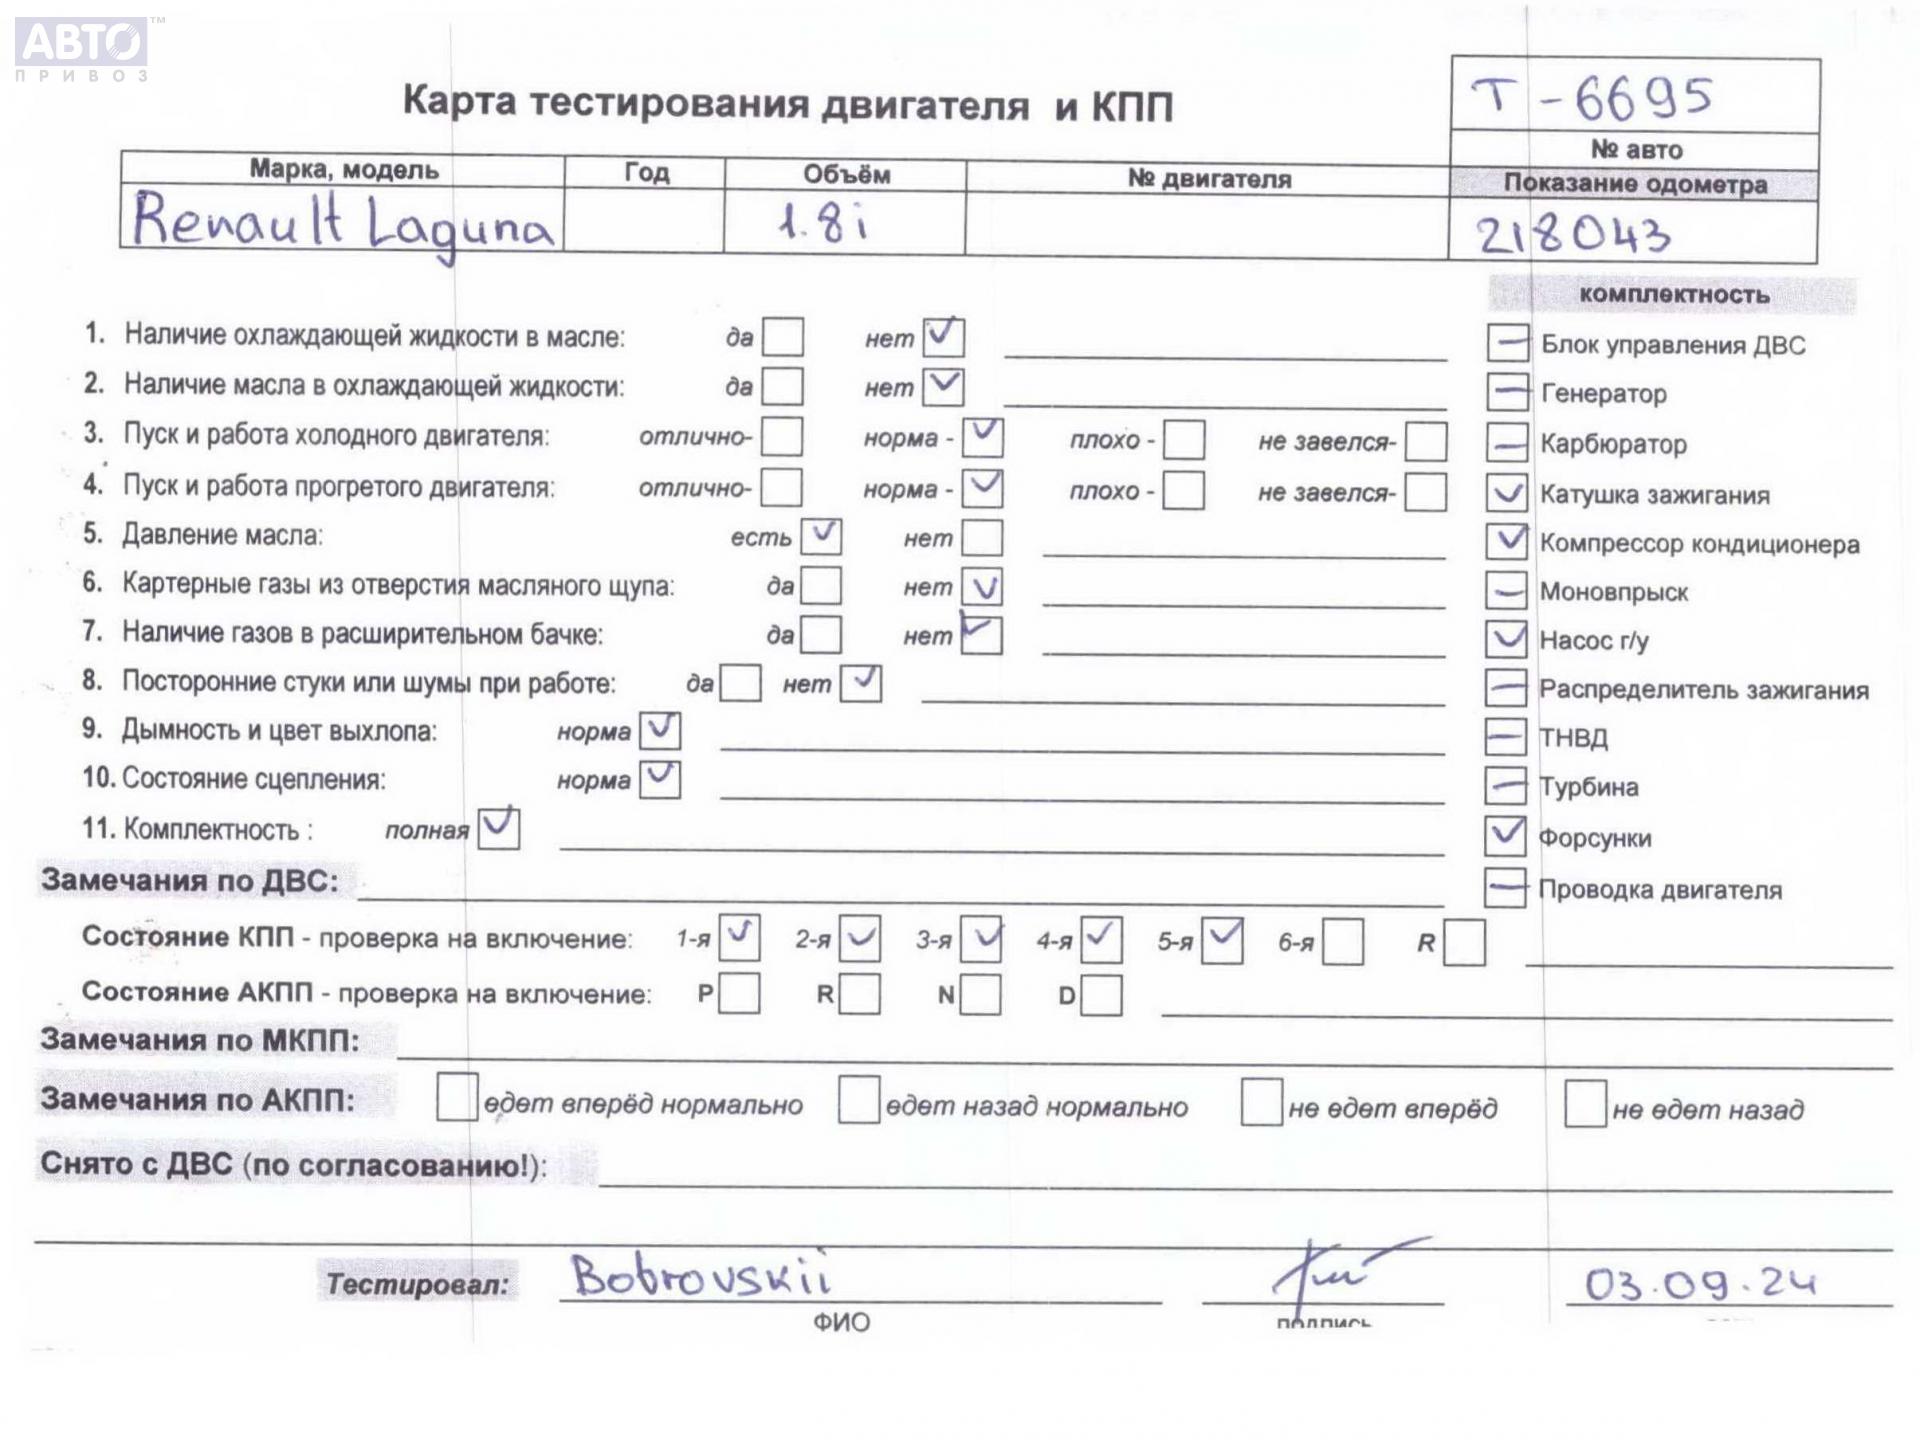 АВТО™
ПРИВОЗ
Карта тестирования двигателя и КПП
T-6695
№ авто
Марка, модель Год Объём № двигателя Показание одометра
Renault Laguna 1.8i 218043
комплектность
1. Наличие охлаждающей жидкости в масле: да нет ✓
Блок управления ДВС
2. Наличие масла в охлаждающей жидкости: да нет ✓
Генератор
3. Пуск и работа холодного двигателя: отлично- норма - ✓ плохо - не завелся-
Карбюратор
4. Пуск и работа прогретого двигателя: отлично- норма - ✓ плохо - не завелся-
✓ Катушка зажигания
5. Давление масла: есть ✓ нет
✓ Компрессор кондиционера
6. Картерные газы из отверстия масляного щупа: да нет ✓
Моновпрыск
7. Наличие газов в расширительном бачке: да нет ✓
✓ Насос г/у
8. Посторонние стуки или шумы при работе: да нет ✓
Распределитель зажигания
9. Дымность и цвет выхлопа: норма ✓
ТНВД
10. Состояние сцепления: норма ✓
Турбина
11. Комплектность : полная ✓
✓ Форсунки
Замечания по ДВС:
Проводка двигателя
Состояние КПП - проверка на включение: 1-я ✓ 2-я ✓ 3-я ✓ 4-я ✓ 5-я ✓ 6-я R
Состояние АКПП - проверка на включение: P R N D
Замечания по МКПП:
Замечания по АКПП: едет вперёд нормально едет назад нормально не едет вперёд не едет назад
Снято с ДВС (по согласованию!):
Тестировал: Bobrovskii 03.09.24
ФИО подпись